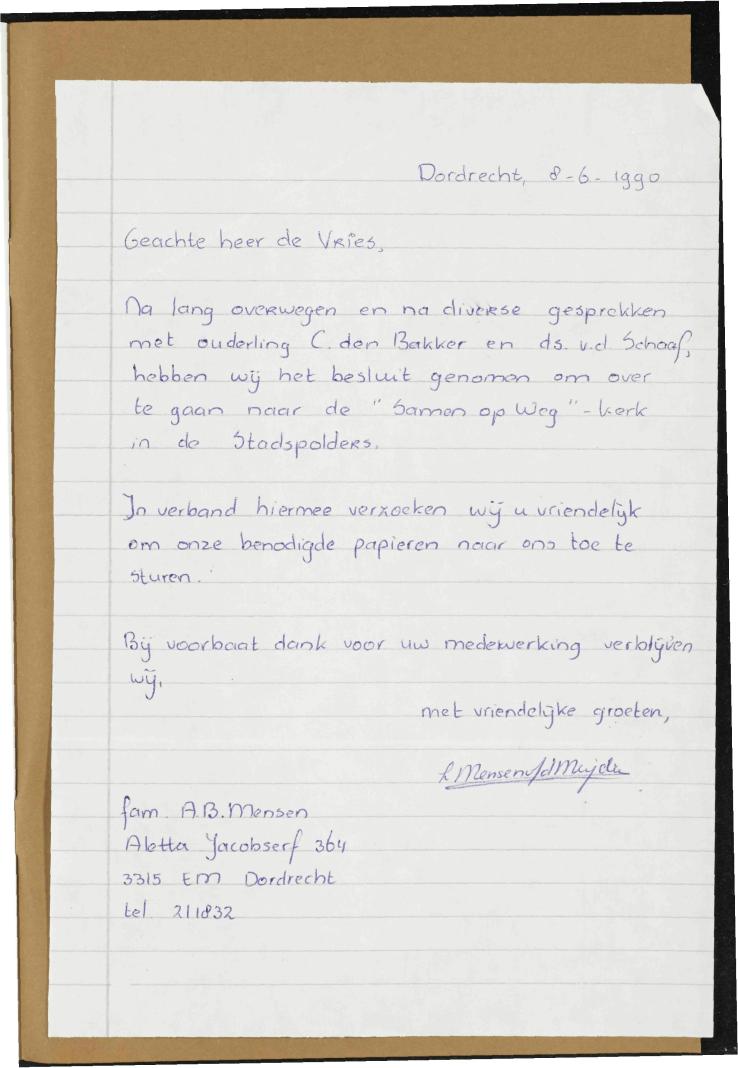 Dordrecht, 8-6-1990
Geachte heer de Vries,
Na lang overwegen en na diverse gesprekken
met ouderling C. den Bakker en ds. v.d Schaaf,
hebben wij het besluit genomen om over
te gaan naar de "Samen op Weg"-kerk
in de Stadspolders.
In verband hiermee verzoeken wij u vriendelijk
om onze benodigde papieren naar ons toe te
sturen.
Bij voorbaat dank voor uw medewerking verblijven
wij,
met vriendelijke groeten,
Mensen v/d Meijde
fam. A.B. Mensen
Aletta Jacobserf 364
3315 EM Dordrecht
tel 211832